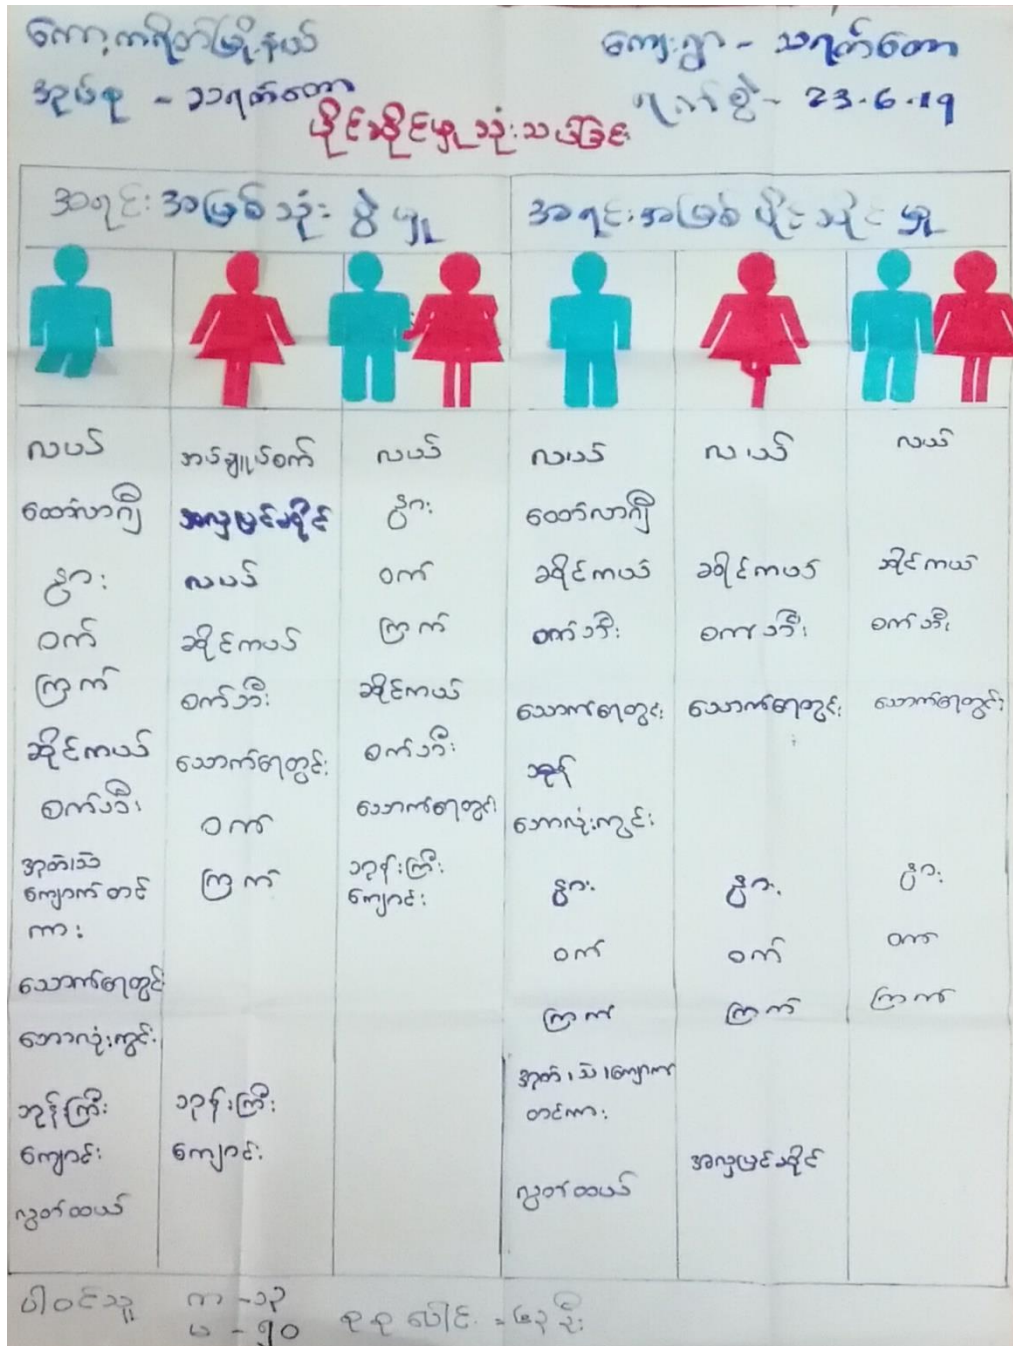 ကော့ကရိတ်မြို့နယ် ကျေးရွာ - သရက်တော
အုပ်စု - သရက်တော ရက်စွဲ - 23.6.19
ပိုင်ဆိုင်မှု သုံးသပ်ခြင်း
အရင်းအမြစ်သုံးစွဲမှု အရင်းအမြစ်ပိုင်ဆိုင်မှု
လယ် အပ်ချုပ်စက် လယ် လယ် လယ် လယ်
ထော်လာဂျီ အလှပြင်ဆိုင် နွား ထော်လာဂျီ
နွား လယ် ဝက် ဆိုင်ကယ် ဆိုင်ကယ် ဆိုင်ကယ်
ဝက် ဆိုင်ကယ် ကြက် စက်ဘီး စက်ဘီး စက်ဘီး
ကြက် စက်ဘီး ဆိုင်ကယ် သောက်ရေတွင်း သောက်ရေတွင်း သောက်ရေတွင်း
ဆိုင်ကယ် သောက်ရေတွင်း စက်ဘီး
စက်ဘီး ဝက် သောက်ရေတွင်း ဘောလုံးကွင်း
အုတ်၊သဲ ကြက် ဘုန်းကြီး နွား နွား နွား
ကျောက်တင် ကျောင်း
ကား ဝက် ဝက် ဝက်
သောက်ရေတွင်း ကြက် ကြက် ကြက်
ဘောလုံးကွင်း အုတ်၊သဲ၊ကျောက်
ဘုန်းကြီး ဘုန်းကြီး တင်ကား
ကျောင်း ကျောင်း အလှပြင်ဆိုင်
လွတ်ထယ် လွတ်ထယ်
ပါဝင်သူ ကျ - ၁၃
မ - ၅၀ စုစုပေါင်း = ၆၃ ဦး